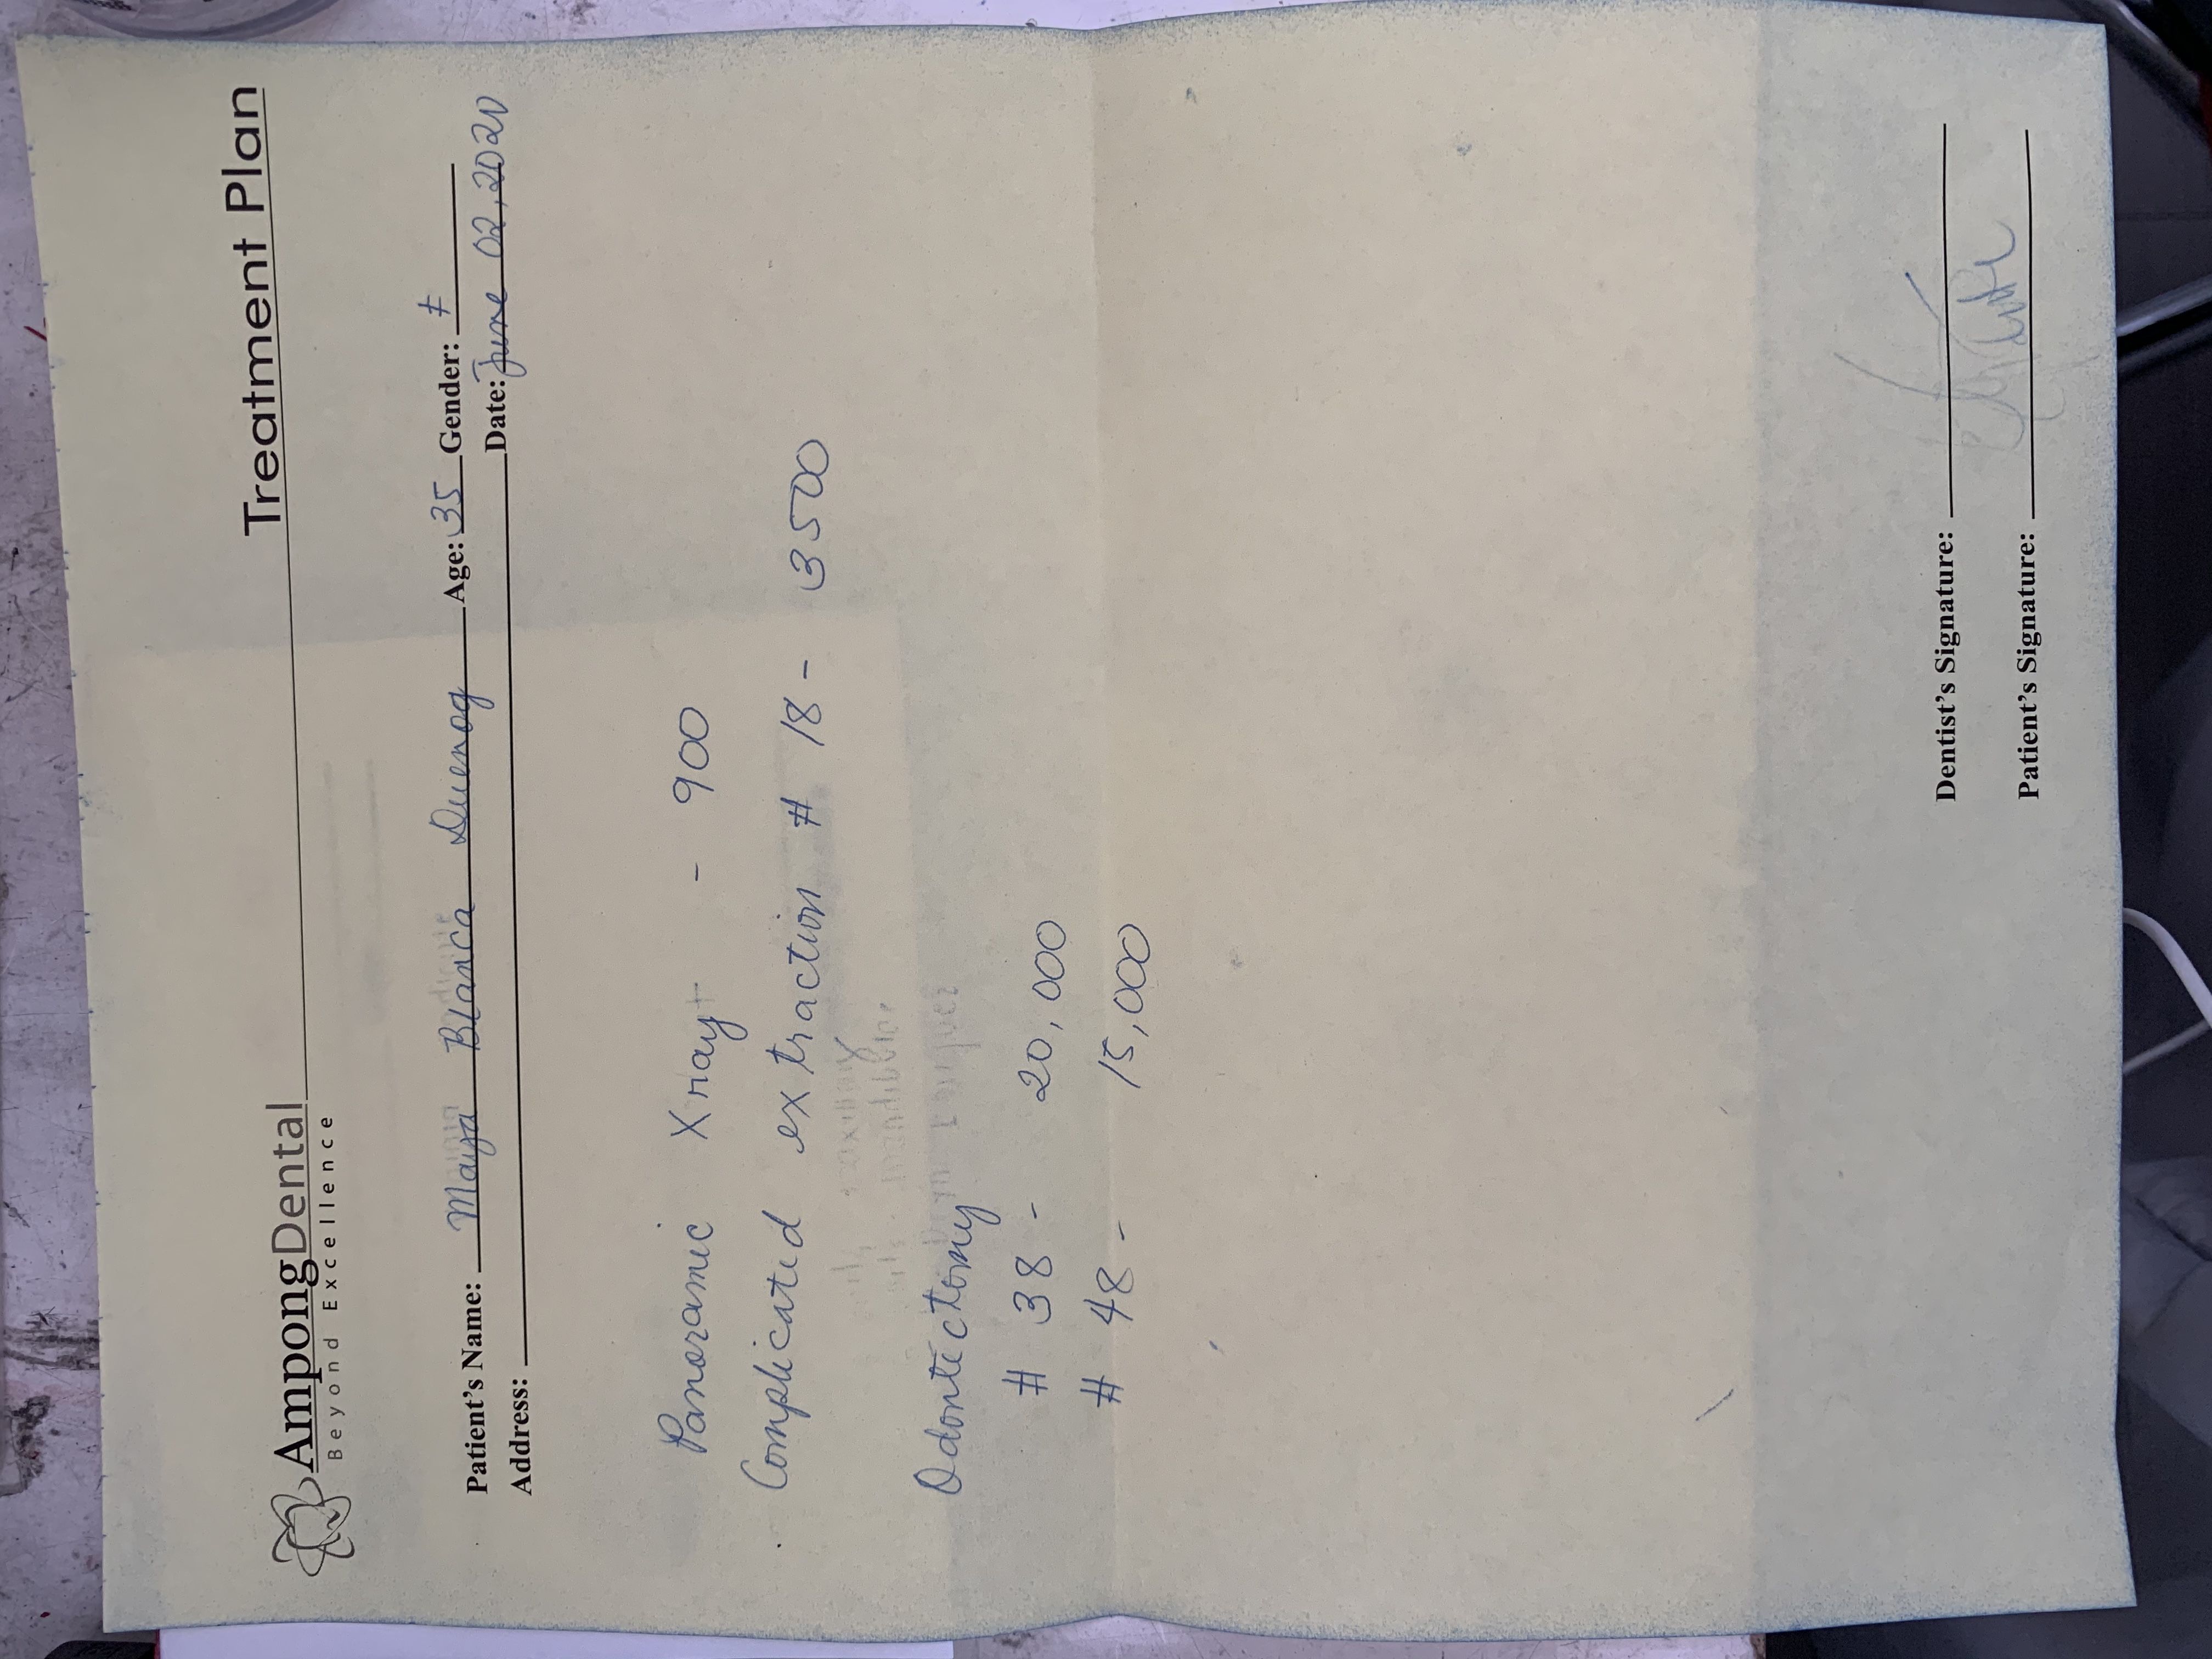 Treatment Plan
AmpongDental
Beyond Excellence
Patient's Name: Maya Blanca Duenog Age: 35 Gender: F
Address: Date: June 02, 2020
Panoramic Xray - 900
Complicated extraction # 18 - 3500
Odontectomy
# 38 - 20,000
# 48 - 15,000
Dentist's Signature:
Patient's Signature: